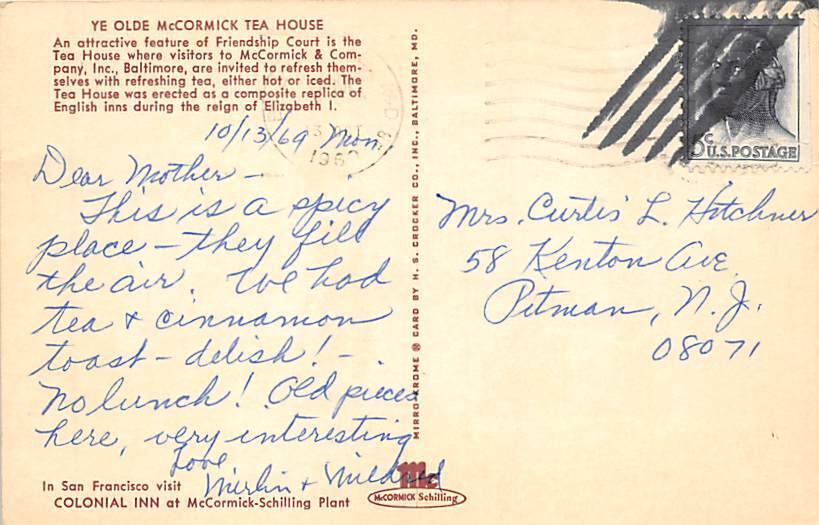 YE OLDE McCORMICK TEA HOUSE
An attractive feature of Friendship Court is the
Tea House where visitors to McCormick & Com-
pany, Inc., Baltimore, are invited to refresh them-
selves with refreshing tea, either hot or iced. The
Tea House was erected as a composite replica of
English inns during the reign of Elizabeth I.
10/13/69 Mon.
Dear Mother -
This is a spicy
place - they fill
the air. We had
tea & cinnamon
toast - delish! -
No lunch! Old pieces
here, very interesting
Love
Merlin & Mildred
In San Francisco visit
COLONIAL INN at McCormick-Schilling Plant
MIRRO-KROME ® CARD BY H. S. CROCKER CO., INC., BALTIMORE, MD.
Mc
McCORMICK Schilling
13 OCT
196
5c
U.S. POSTAGE
Mrs. Curtis L. Hitchner
58 Kenton Ave.
Pitman, N. J.
08071